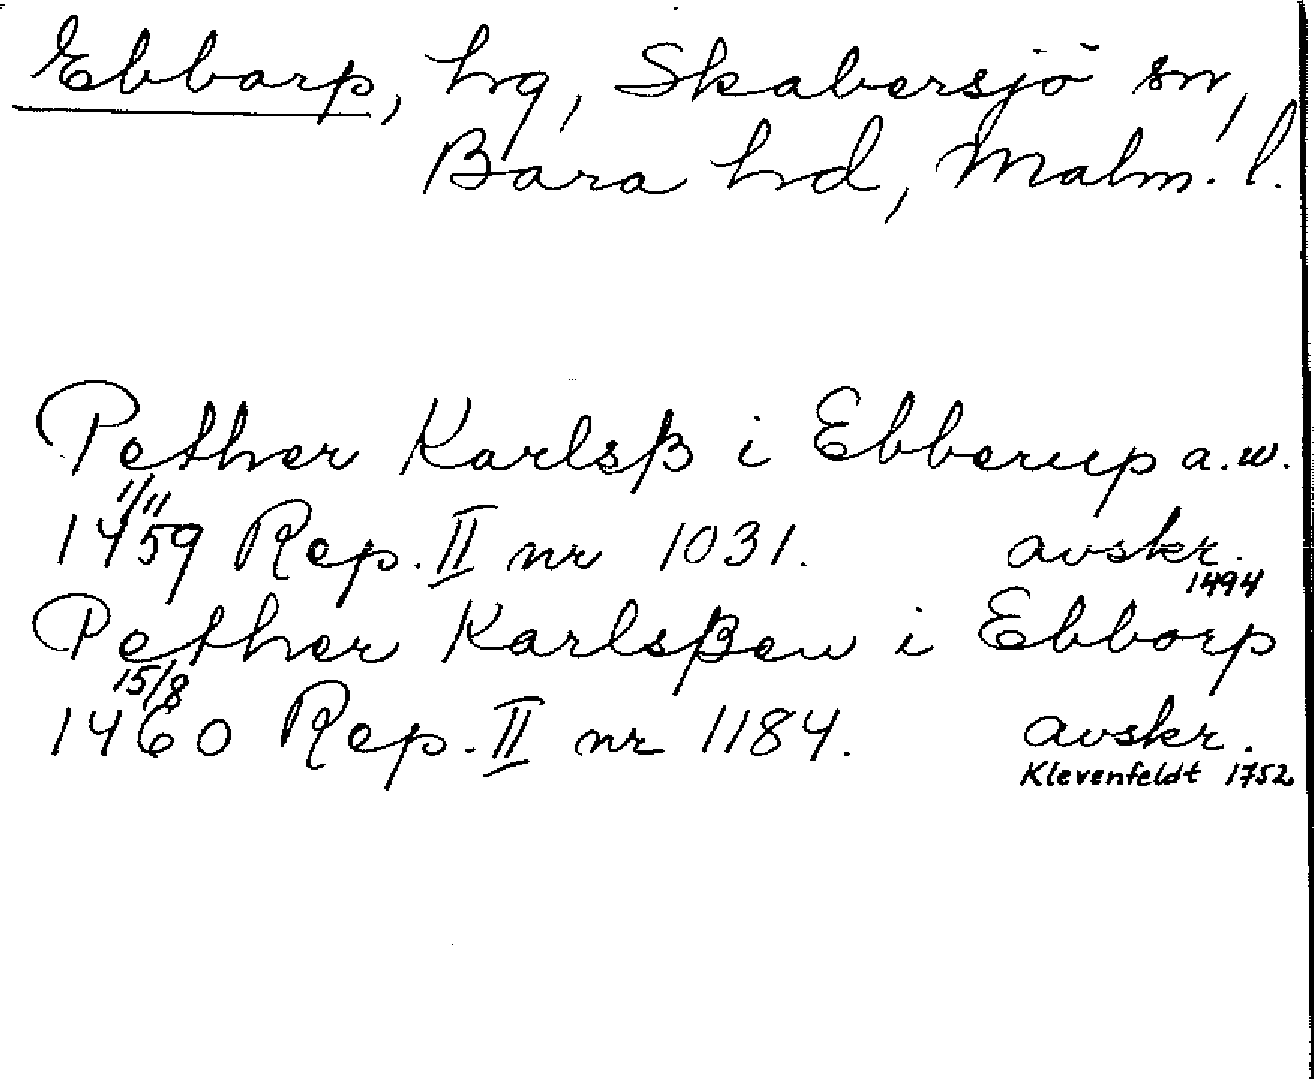 Ebbarp, hg, Skabersjö sn,
Bara hd, Malm. l.
Pether Karlsß i Ebberup a.w.
1/11
1459 Rep. II nr 1031. avskr.
1494
Pether Karlsßen i Ebborp
15/8
1460 Rep. II nr 1184. avskr.
Klevenfeldt 1752